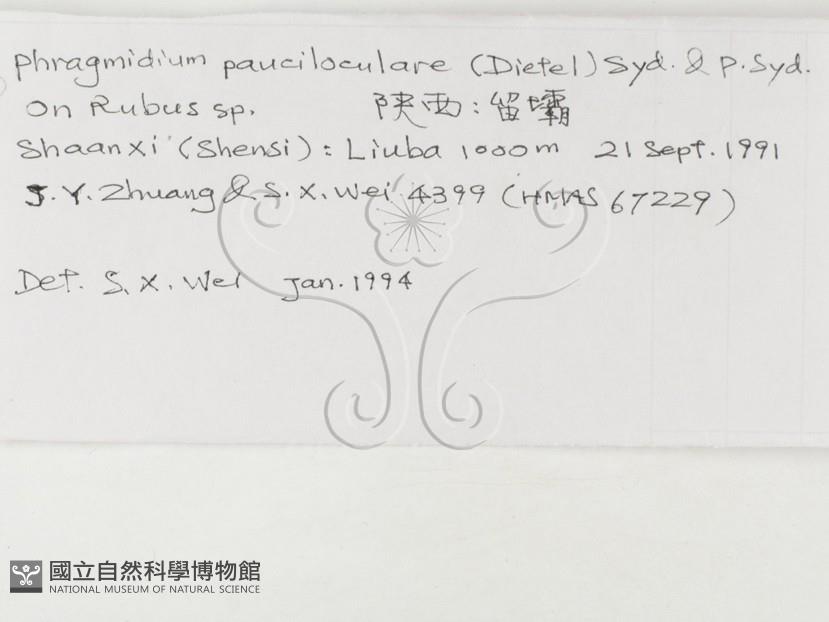 Phragmidium pauciloculare (Dietel) Syd. & P. Syd.
On Rubus sp. 陕西:留壩
Shaanxi (Shensi): Liuba 1000m 21 Sept. 1991
J. Y. Zhuang & S. X. Wei 4399 (HMAS 67229)
Det. S. X. Wei Jan. 1994
國立自然科學博物館
NATIONAL MUSEUM OF NATURAL SCIENCE